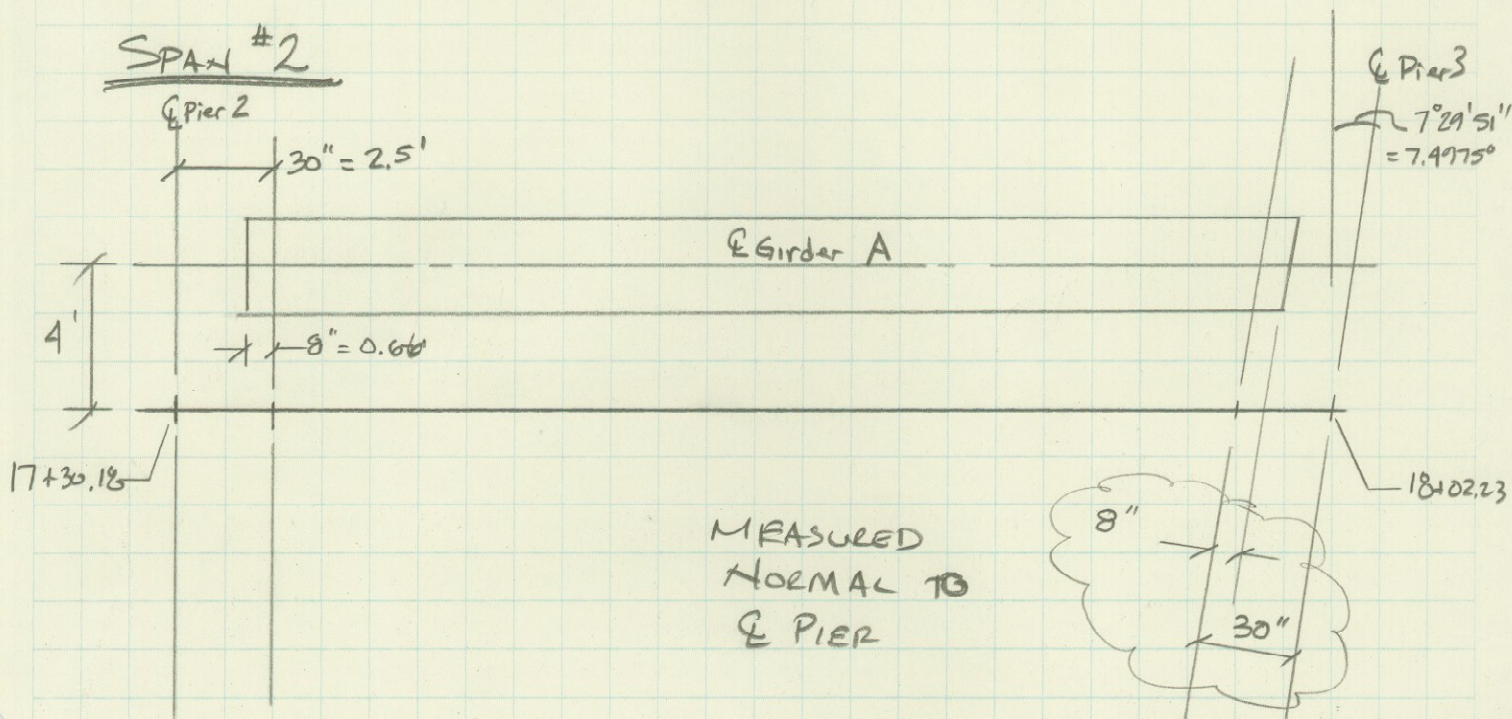 SPAN #2
℄ Pier 2
30" = 2.5'
℄ Pier 3
7°29'51"
= 7.4975°
℄ Girder A
4'
8" = 0.66'
17+30.18
18+02.23
MEASURED
NORMAL TO
℄ PIER
8"
30"